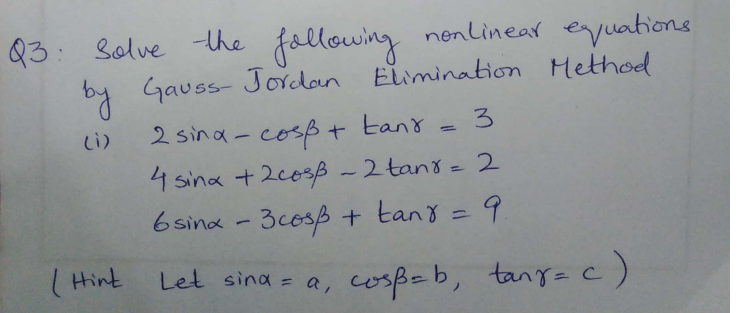 Q3: Solve the following nonlinear equations
by Gauss-Jordan Elimination Method
(i) 2 sinα - cosβ + tanγ = 3
4 sinα + 2cosβ - 2tanγ = 2
6sinα - 3cosβ + tanγ = 9
(Hint Let sinα = a, cosβ = b, tanγ = c)